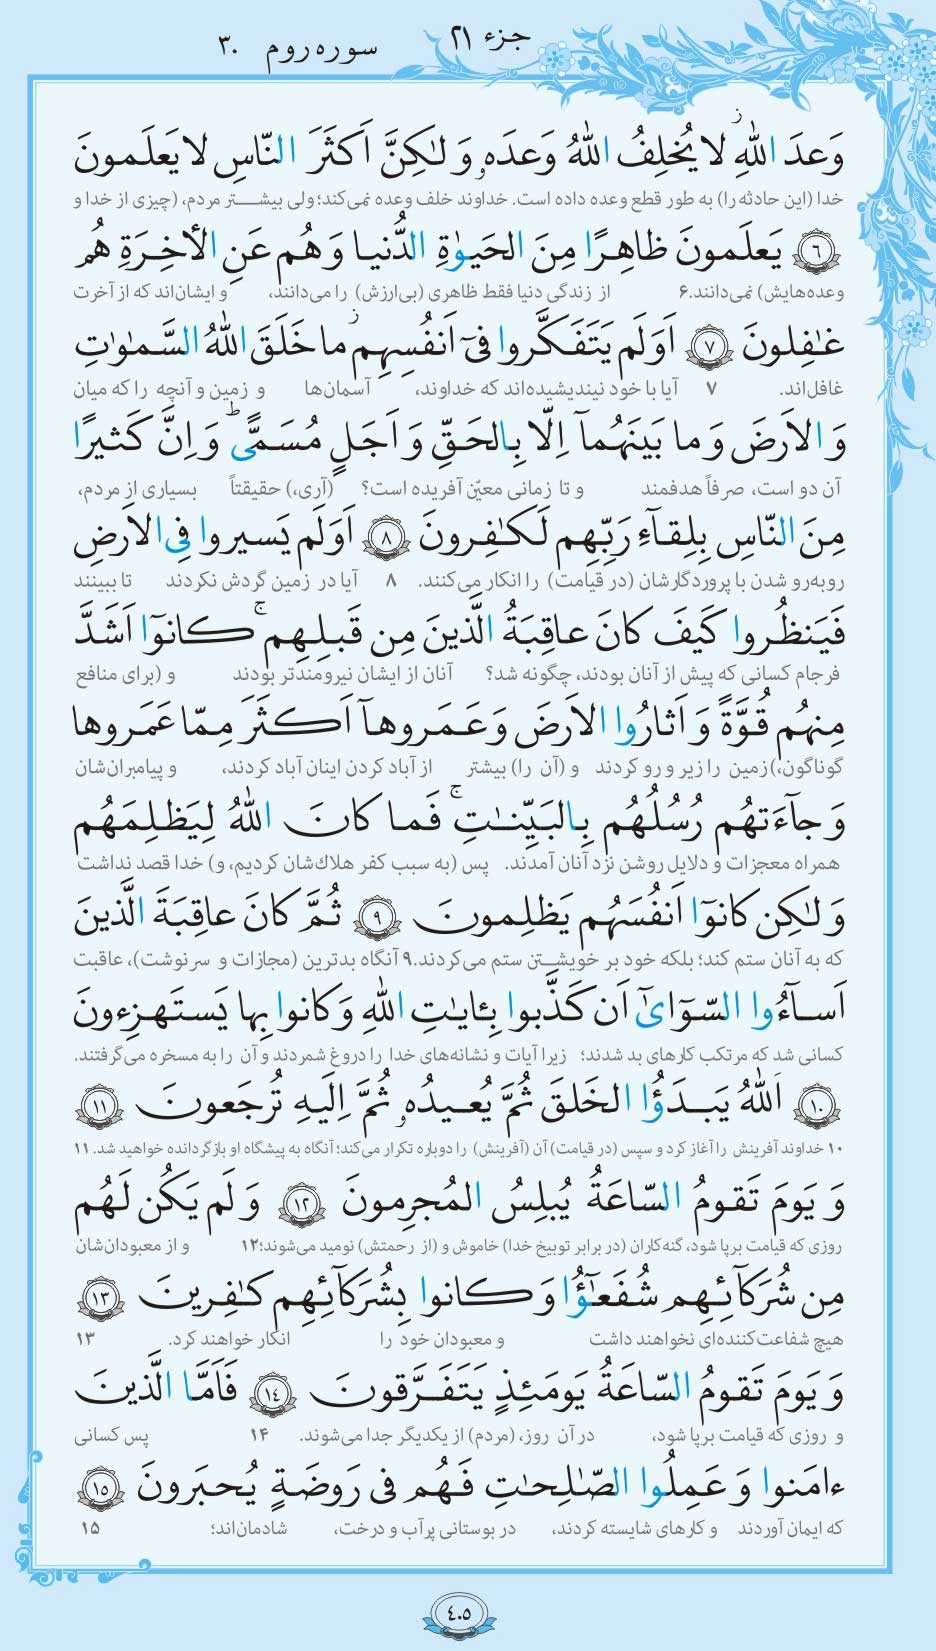 جزء ۲۱
سوره روم ۳۰
وَعدَ اللهِ لا يُخلِفُ اللهُ وَعدَه‌و وَ لٰكِنَّ اَكثَرَ النّاسِ لا يَعلَمونَ
خدا (این حادثه را) به طور قطع وعده داده است. خداوند خلف وعده نمی‌کند؛ ولی بیشتر مردم، (چیزی از خدا و
﴿٦﴾ يَعلَمونَ ظاهِرًا مِنَ الحَيوٰةِ الدُّنيا وَ هُم عَنِ الأخِرَةِ هُم
وعده‌هایش) نمی‌دانند.۶ از زندگی دنیا فقط ظاهری (بی‌ارزش) را می‌دانند، و ایشان‌اند که از آخرت
غٰفِلونَ ﴿٧﴾ اَوَلَم يَتَفَكَّروا فى اَنفُسِهِم ما خَلَقَ اللهُ السَّمٰوٰتِ
غافل‌اند. ۷ آیا با خود نیندیشیده‌اند که خداوند، آسمان‌ها و زمین و آنچه را که میان
وَ الاَرضَ وَ ما بَينَهُمآ اِلّا بِالحَقِّ وَ اَجَلٍ مُسَمًّى وَ اِنَّ كَثيرًا
آن دو است، صرفاً هدفمند و تا زمانی معیّن آفریده است؟ (آری،) حقیقتاً بسیاری از مردم،
مِنَ النّاسِ بِلِقآءِ رَبِّهِم لَكٰفِرونَ ﴿٨﴾ اَوَلَم يَسيروا فِى الاَرضِ
روبه‌رو شدن با پروردگارشان (در قیامت) را انکار می‌کنند. ۸ آیا در زمین گردش نکردند تا ببینند
فَيَنظُروا كَيفَ كانَ عاقِبَةُ الَّذينَ مِن قَبلِهِم كانوٓا اَشَدَّ
فرجام کسانی که پیش از آنان بودند، چگونه شد؟ آنان از ایشان نیرومندتر بودند و (برای منافع
مِنهُم قُوَّةً وَ اَثارُوا الاَرضَ وَ عَمَروهآ اَكثَرَ مِمّا عَمَروها
گوناگون،) زمین را زیر و رو کردند و (آن را) بیشتر از آباد کردن اینان آباد کردند، و پیامبران‌شان
وَ جآءَتهُم رُسُلُهُم بِالبَيِّنٰتِ فَما كانَ اللهُ لِيَظلِمَهُم
همراه معجزات و دلایل روشن نزد آنان آمدند. پس (به سبب کفر هلاک‌شان کردیم، و) خدا قصد نداشت
وَ لٰكِن كانوٓا اَنفُسَهُم يَظلِمونَ ﴿٩﴾ ثُمَّ كانَ عاقِبَةَ الَّذينَ
که به آنان ستم کند؛ بلکه خود بر خویشتن ستم می‌کردند.۹ آنگاه بدترین (مجازات و سرنوشت)، عاقبت
اَسآءُوا السّوأىٰٓ اَن كَذَّبوا بِـٔايٰتِ اللهِ وَ كانوا بِها يَستَهزِءونَ
کسانی شد که مرتکب کارهای بد شدند؛ زیرا آیات و نشانه‌های خدا را دروغ شمردند و آن را به مسخره می‌گرفتند.
﴿١٠﴾ اَللهُ يَبدَؤُا الخَلقَ ثُمَّ يُعيدُه‌و ثُمَّ اِلَيهِ تُرجَعونَ ﴿١١﴾
۱۰ خداوند آفرینش را آغاز کرد و سپس (در قیامت) آن (آفرینش) را دوباره تکرار می‌کند؛ آنگاه به پیشگاه او بازگردانده خواهید شد. ۱۱
وَ يَومَ تَقومُ السّاعَةُ يُبلِسُ المُجرِمونَ ﴿١٢﴾ وَ لَم يَكُن لَهُم
روزی که قیامت برپا شود، گنه‌کاران (در برابر توبیخ خدا) خاموش و (از رحمتش) نومید می‌شوند؛۱۲ و از معبودان‌شان
مِن شُرَكآئِهِم شُفَعٰٓؤُا وَ كانوا بِشُرَكآئِهِم كٰفِرينَ ﴿١٣﴾
هیچ شفاعت‌کننده‌ای نخواهند داشت و معبودان خود را انکار خواهند کرد. ۱۳
وَ يَومَ تَقومُ السّاعَةُ يَومَئِذٍ يَتَفَرَّقونَ ﴿١٤﴾ فَاَمَّا الَّذينَ
و روزی که قیامت برپا شود، در آن روز، (مردم) از یکدیگر جدا می‌شوند. ۱۴ پس کسانی
ءامَنوا وَ عَمِلُوا الصّٰلِحٰتِ فَهُم فى رَوضَةٍ يُحبَرونَ ﴿١٥﴾
که ایمان آوردند و کارهای شایسته کردند، در بوستانی پرآب و درخت، شادمان‌اند؛ ۱۵
٤٠٥